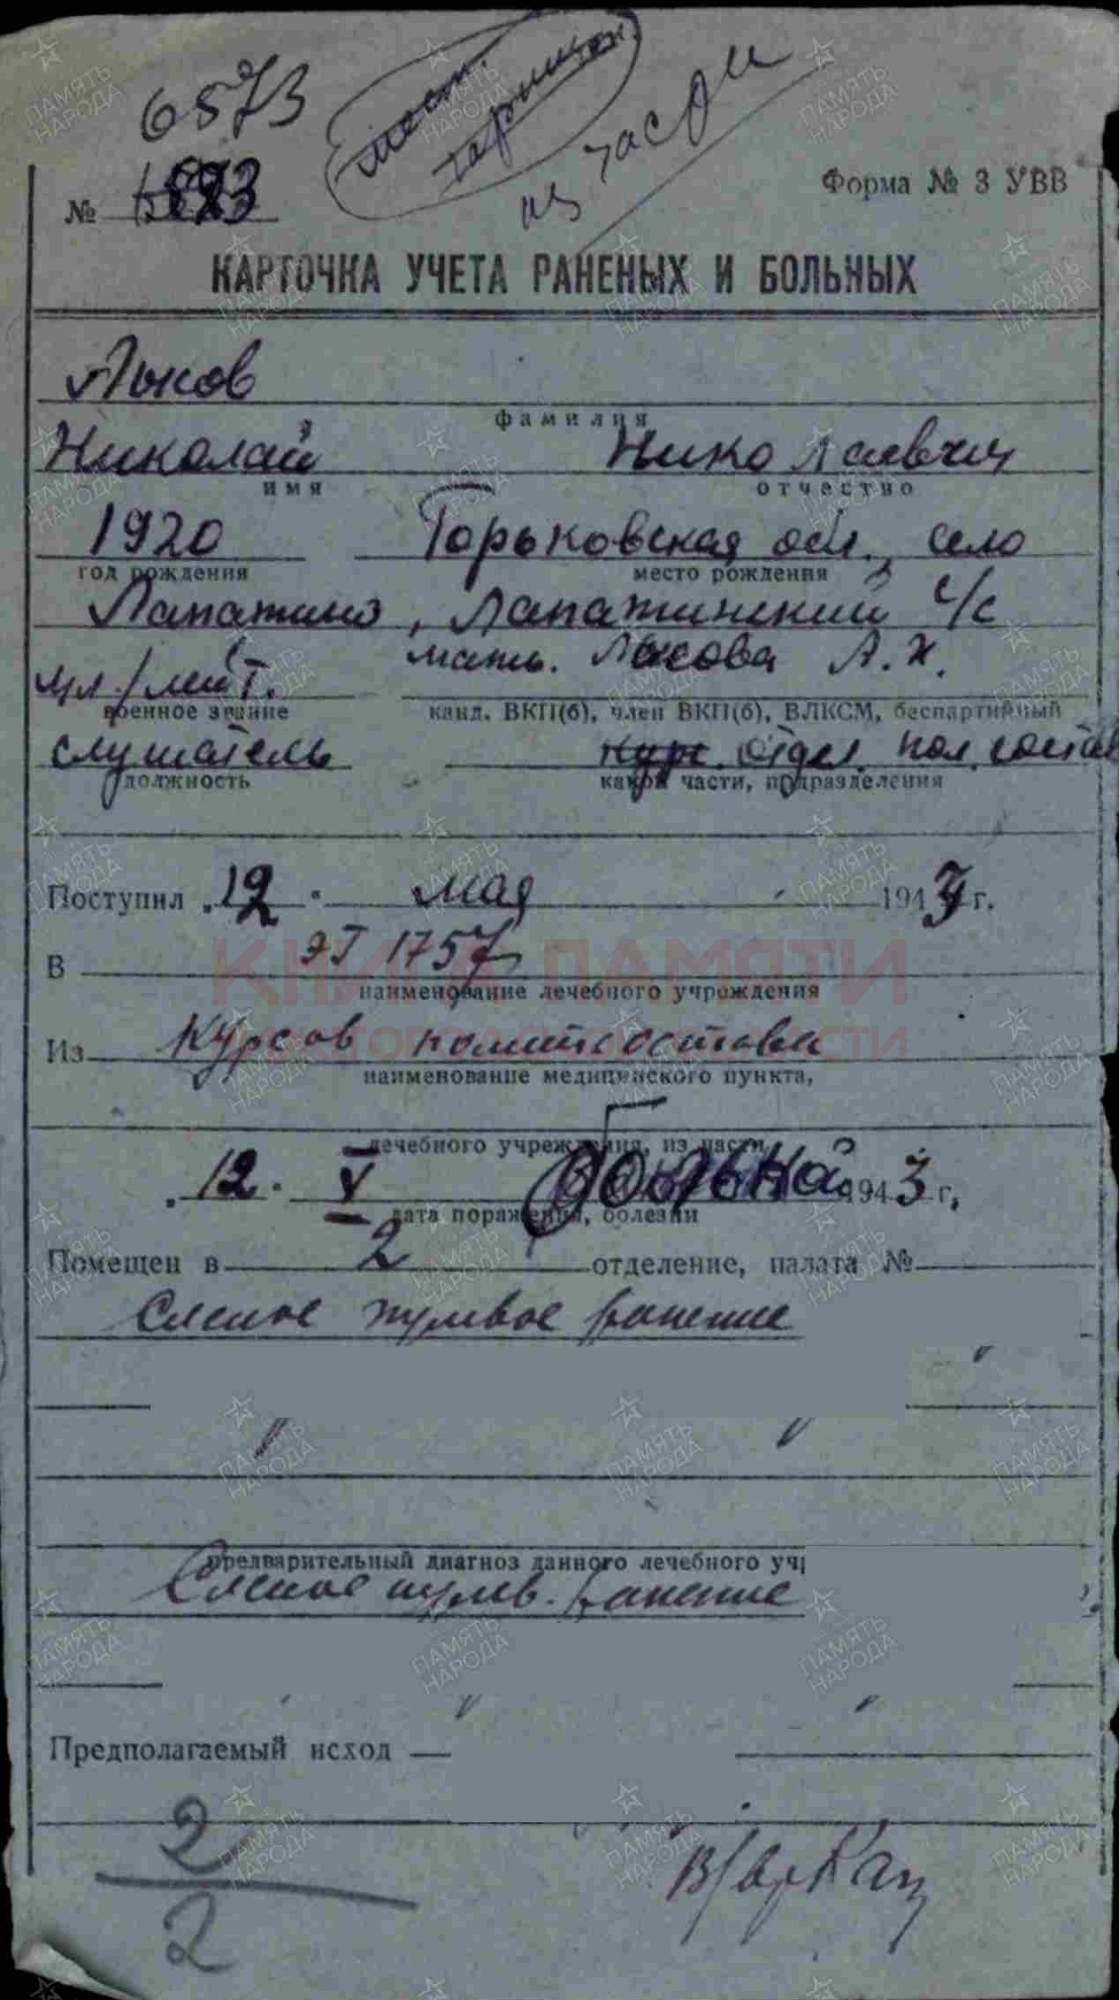 6573
мест.
гарнизон.
из части
№ 6593
Форма № 3 УВВ
КАРТОЧКА УЧЕТА РАНЕНЫХ И БОЛЬНЫХ
Лыков
фамилия
Николай Николаевич
имя отчество
1920 Горьковская обл., село
год рождения место рождения
Лапатино, Лапатинский с/с
мать. Лыкова А. Н.
мл./лейт.
военное звание канд. ВКП(б), член ВКП(б), ВЛКСМ, беспартийный
слушатель курс. отдел. пол. состав
должность какой части, подразделения
Поступил „12“ мая 1943 г.
В ЭГ 1757
наименование лечебного учреждения
КНИГА ПАМЯТИ
НИЖЕГОРОДСКОЙ ОБЛАСТИ
Из Курсов политсостава
наименование медицинского пункта,
лечебного учреждения, из части
„12“ V больной 1943 г.
дата поражения, болезни
Помещен в 2 отделение, палата №
Слепое пулевое ранение
предварительный диагноз данного лечебного уч
Слепое пулев. ранение
Предполагаемый исход
2
2
В/вр Кац
ПАМЯТЬ НАРОДА